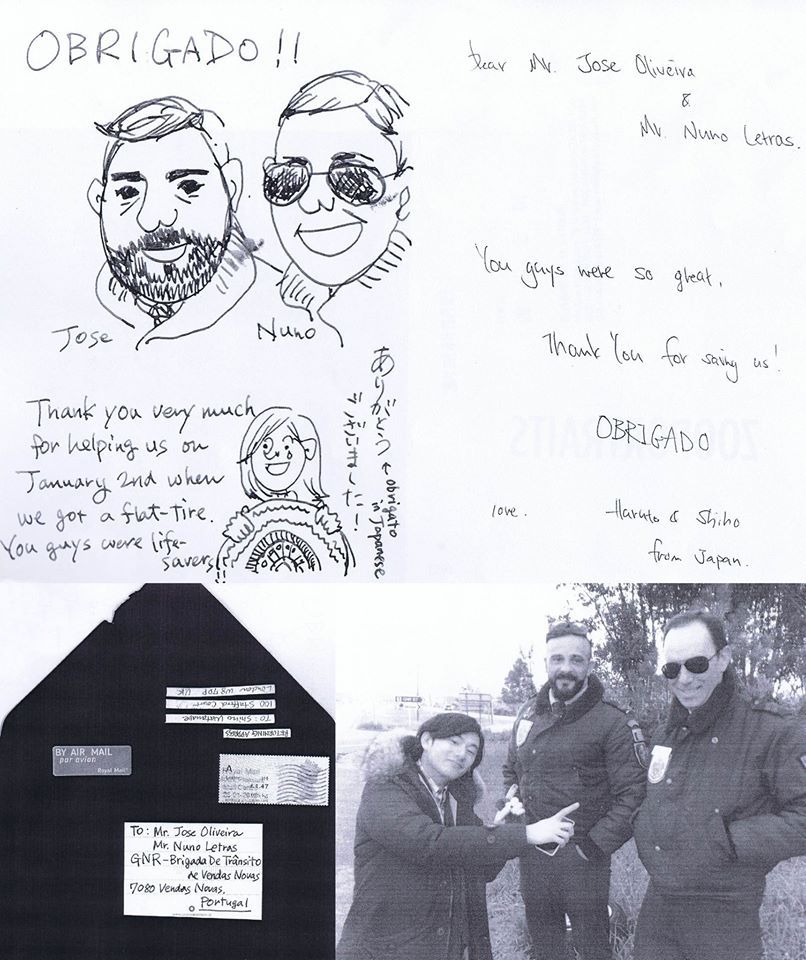 OBRIGADO!!
Jose
Nuno
Thank you very much
for helping us on
January 2nd when
we got a flat-tire.
You guys were life-
savers!!
ありがとう
ございました!
← obrigato
in Japanese
Dear Mr. Jose Oliveira
&
Mr. Nuno Letras.
You guys were so great.
Thank You for saving us!
OBRIGADO
love.
Haruto & Shiho
from Japan.
RETURNING ADDRESS
TO: Shiho Watanabe
100 Stafford Court
London W8 7DP UK
BY AIR MAIL
par avion
Royal Mail
A
Royal Mail
£1.47
TO: Mr. Jose Oliveira
Mr. Nuno Letras
GNR-Brigada De Trânsito
de Vendas Novas
7080 Vendas Novas.
Portugal